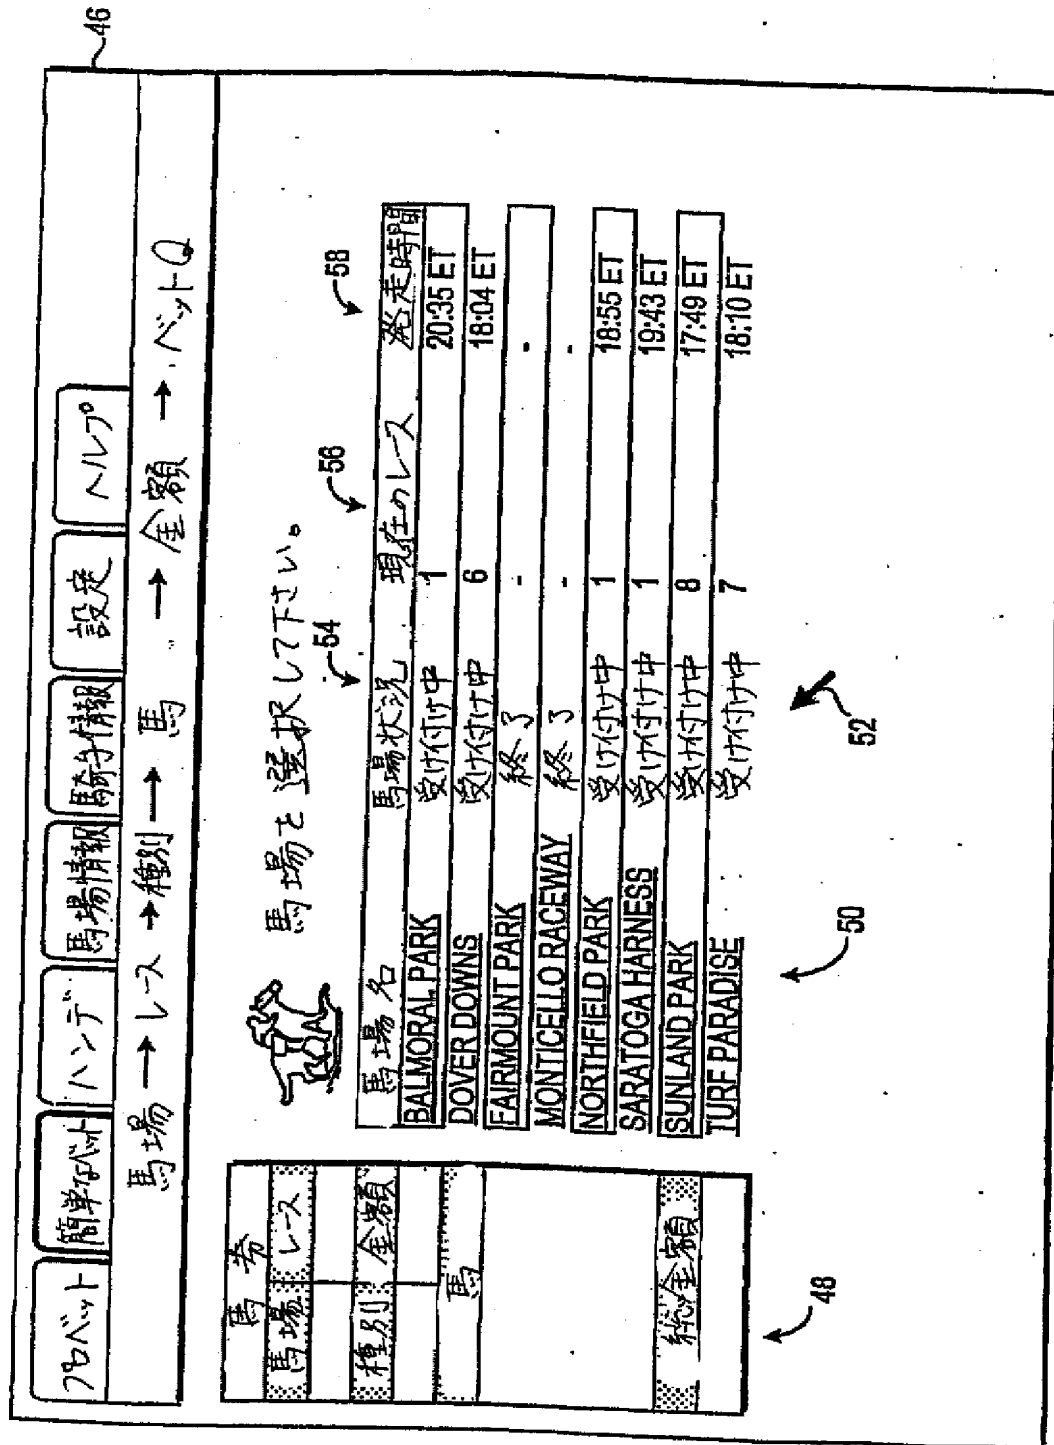 46
プロベット 簡単なベット ハンデ 馬場情報 騎手情報 設定 ヘルプ
馬場 → レース → 種別 → 馬 → 金額 → ベットQ
馬場を選択して下さい。
54 56 58
馬場名 馬場状況 現在のレース 発走時間
BALMORAL PARK 受け付け中 1 20:35 ET
DOVER DOWNS 受け付け中 6 18:04 ET
FAIRMOUNT PARK 終了 - -
MONTICELLO RACEWAY 終了 - -
NORTHFIELD PARK 受け付け中 1 18:55 ET
SARATOGA HARNESS 受け付け中 1 19:43 ET
SUNLAND PARK 受け付け中 8 17:49 ET
TURF PARADISE 受け付け中 7 18:10 ET
馬券
馬場 レース
種別 金額
馬
総金額
48 50 52